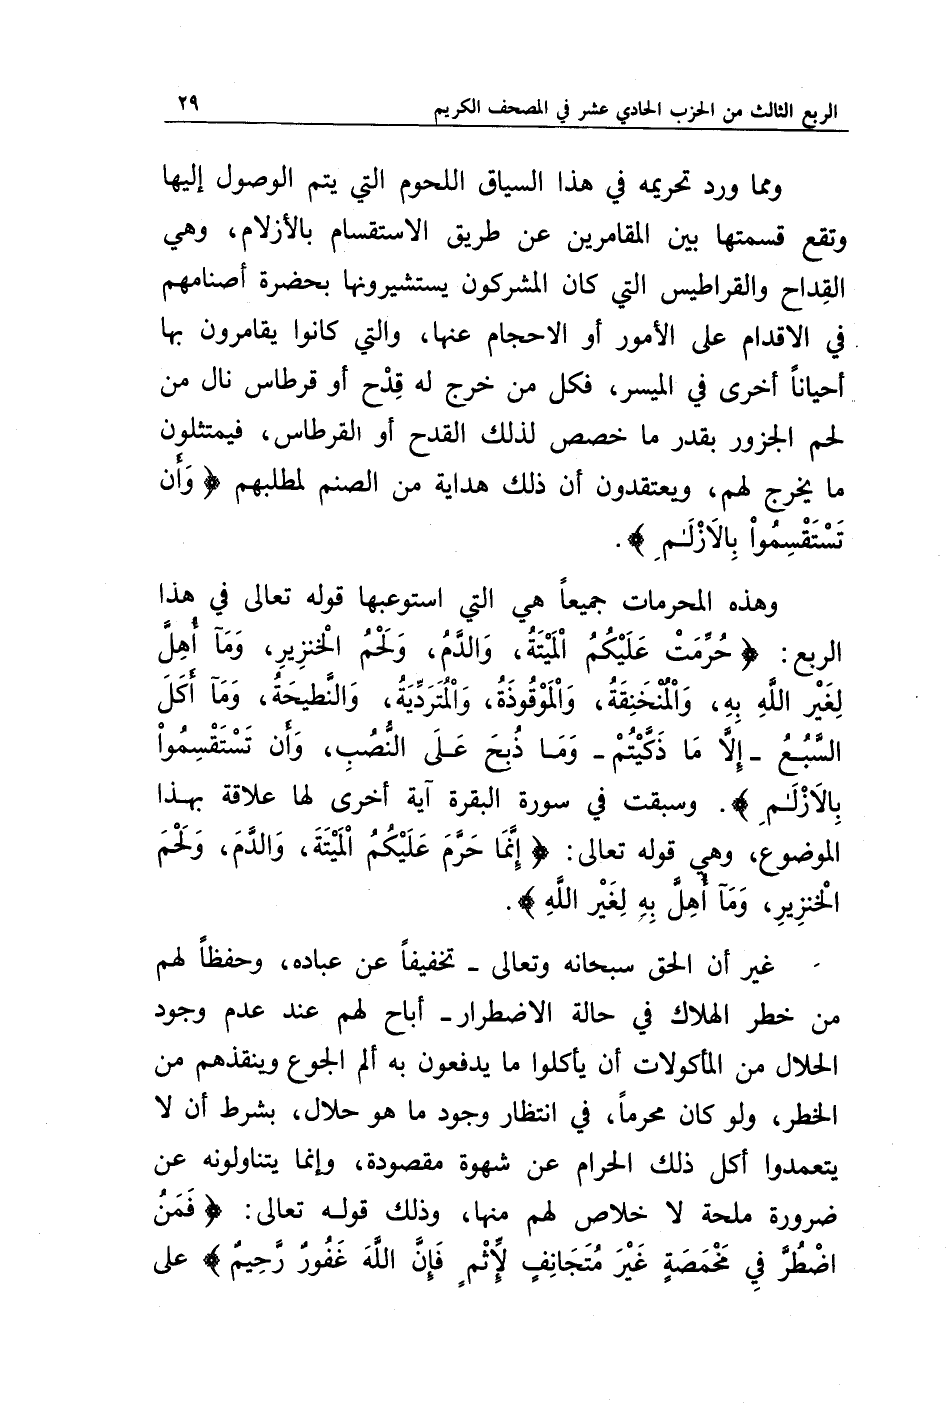 الربع الثالث من الحزب الحادي عشر في المصحف الكريم ٢٩
ومما ورد تحريمه في هذا السياق اللحوم التي يتم الوصول إليها
وتقع قسمتها بين المقامرين عن طريق الاستقسام بالأزلام، وهي
القِداح والقراطيس التي كان المشركون يستشيرونها بحضرة أصنامهم
في الاقدام على الأمور أو الاحجام عنها، والتي كانوا يقامرون بها
أحياناً أخرى في الميسر، فكل من خرج له قِدْح أو قرطاس نال من
لحم الجزور بقدر ما خصص لذلك القدح أو القرطاس، فيمتثلون
ما يخرج لهم، ويعتقدون أن ذلك هداية من الصنم لمطلبهم ﴿ وَأَن
تَسْتَقْسِمُواْ بِالَازْلَـٰمِ ﴾.
وهذه المحرمات جميعاً هي التي استوعبها قوله تعالى في هذا
الربع: ﴿ حُرِّمَتْ عَلَيْكُمُ الْمَيْتَةُ، وَالدَّمُ، وَلَحْمُ الْخنزِيرِ، وَمَآ أُهِلَّ
لِغَيْرِ اللَّهِ بِهِ، وَالْمُنْخَنِقَةُ، وَالْمَوْقُوذَةُ، وَالْمُتَرَدِّيَةُ، وَالنَّطِيحَةُ، وَمَآ أَكَلَ
السَّبُعُ ـ إِلَّا مَا ذَكَّيْتُمْ ـ وَمَا ذُبِحَ عَلَى النُّصُبِ، وَأَن تَسْتَقْسِمُواْ
بِالَازْلَـٰمِ ﴾. وسبقت في سورة البقرة آية أخرى لها علاقة بهذا
الموضوع، وهي قوله تعالى: ﴿ إِنَّمَا حَرَّمَ عَلَيْكُمُ الْمَيْتَةَ، وَالدَّمَ، وَلَحْمَ
الْخنزِيرِ، وَمَآ أُهِلَّ بِهِ لِغَيْرِ اللَّهِ ﴾.
غير أن الحق سبحانه وتعالى ـ تخفيفاً عن عباده، وحفظاً لهم
من خطر الهلاك في حالة الاضطرار ـ أباح لهم عند عدم وجود
الحلال من المأكولات أن يأكلوا ما يدفعون به ألم الجوع وينقذهم من
الخطر، ولو كان محرماً، في انتظار وجود ما هو حلال، بشرط أن لا
يتعمدوا أكل ذلك الحرام عن شهوة مقصودة، وإنما يتناولونه عن
ضرورة ملحة لا خلاص لهم منها، وذلك قوله تعالى: ﴿ فَمَنُ
اضْطُرَّ فِي مَخْمَصَةٍ غَيْرَ مُتَجَانِفٍ لِّإِثْمٍ فَإِنَّ اللَّهَ غَفُورٌ رَّحِيمٌ ﴾ على